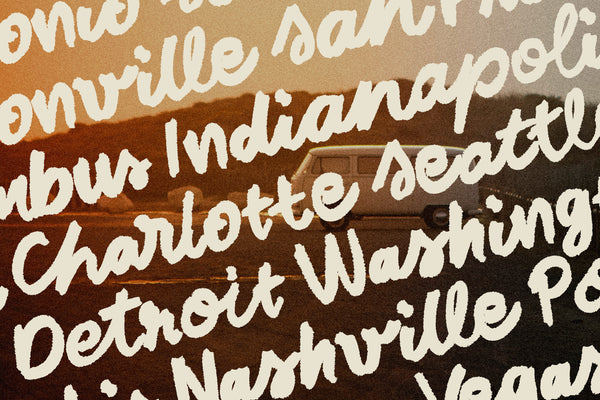 onio s
onville san Fra
mbus Indianapoli
Charlotte seattl
Detroit Washingt
is Nashville Po
Vegas